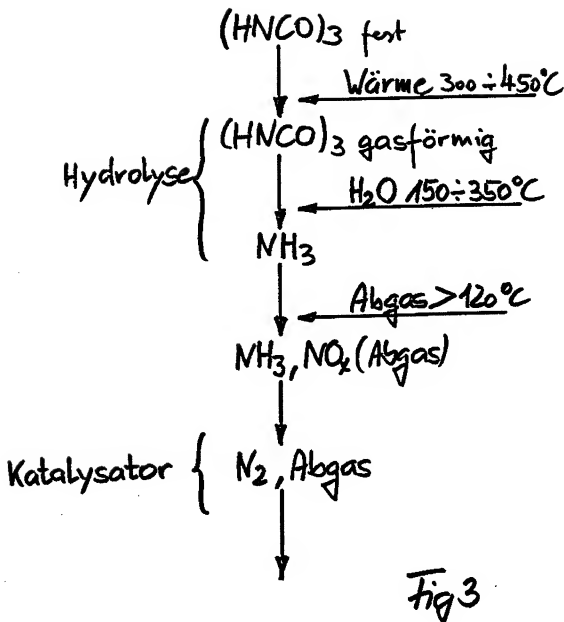 (HNCO)3 fest
Wärme 300÷450°C
(HNCO)3 gasförmig
Hydrolyse
H2O 150÷350°C
NH3
Abgas>120°C
NH3, NOx (Abgas)
Katalysator { N2, Abgas
Fig 3